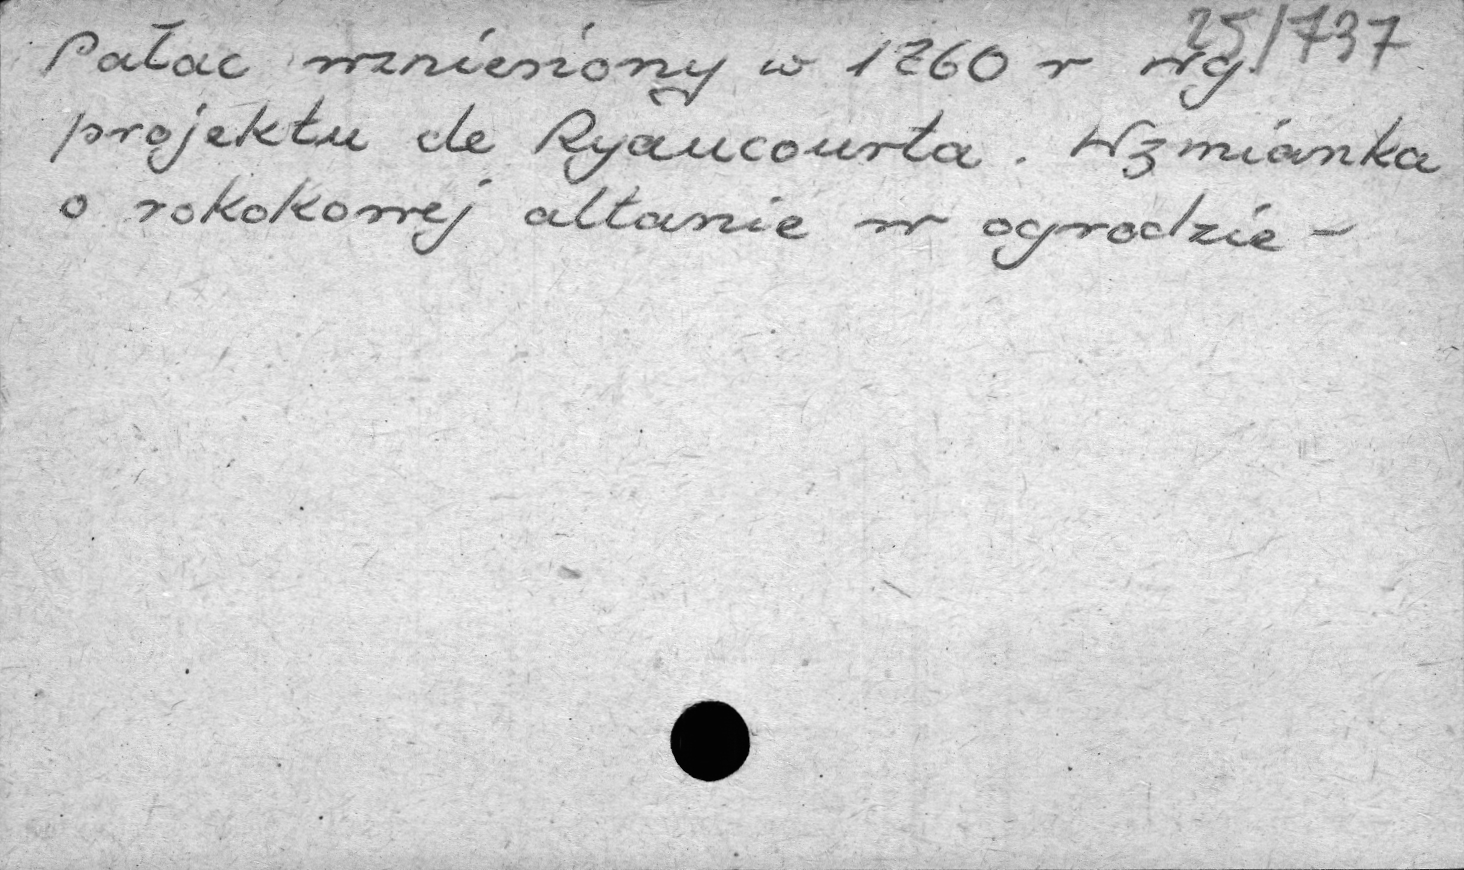 25/737
Pałac wzniesiony w 1760 r wg.
projektu de Ryaucourta. Wzmianka
o rokokowej altanie w ogrodzie –